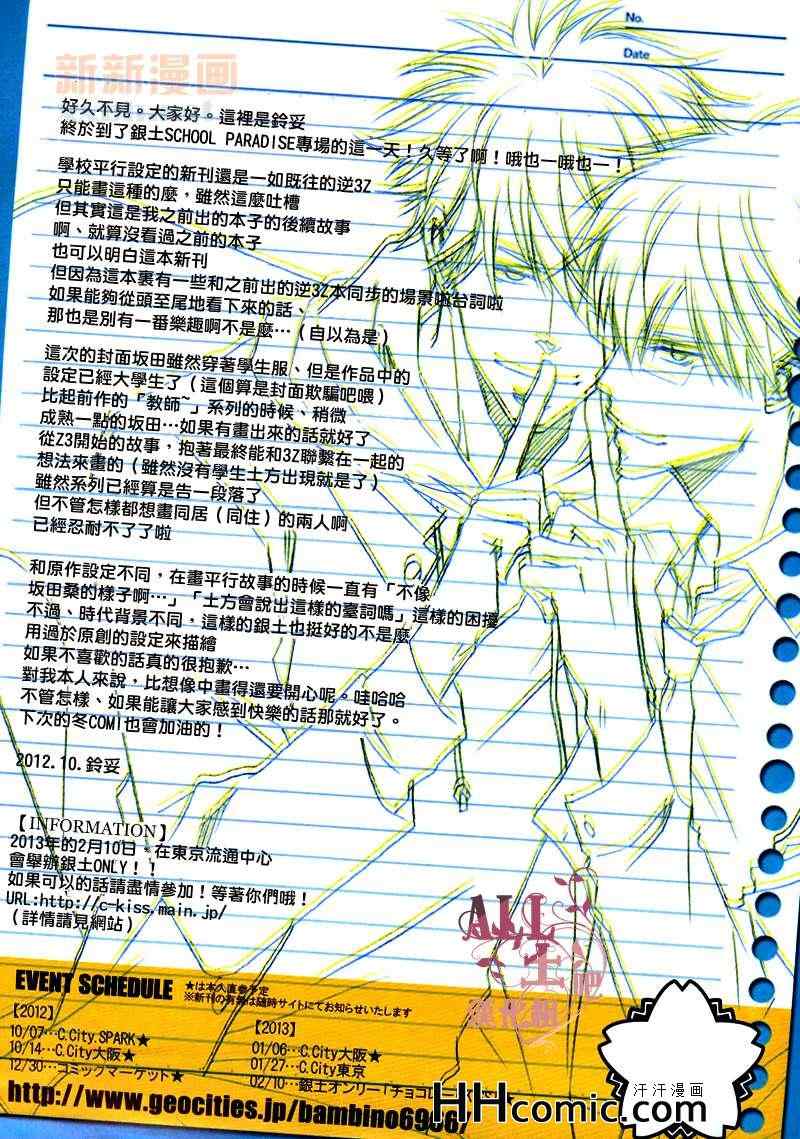 No.
Date
新新漫画
好久不見。大家好。這裡是鈴妥
終於到了銀土SCHOOL PARADISE專場的這一天！久等了啊！哦也一哦也一！
學校平行設定的新刊還是一如既往的逆3Z
只能畫這種的麼，雖然這麼吐槽
但其實這是我之前出的本子的後續故事
啊、就算沒看過之前的本子
也可以明白這本新刊
但因為這本裏有一些和之前出的逆3Z本同步的場景啦台詞啦
如果能夠從頭至尾地看下來的話、
那也是別有一番樂趣啊不是麼…（自以為是）
這次的封面坂田雖然穿著學生服、但是作品中的
設定已經大學生了（這個算是封面欺騙吧喂）
比起前作的「教師~」系列的時候、稍微
成熟一點的坂田…如果有畫出來的話就好了
從Z3開始的故事，抱著最終能和3Z聯繫在一起的
想法來畫的（雖然沒有學生土方出現就是了）
雖然系列已經算是告一段落了
但不管怎樣都想畫同居（同住）的兩人啊
已經忍耐不了了啦
和原作設定不同，在畫平行故事的時候一直有「不像
坂田桑的樣子啊…」「土方會說出這樣的臺詞嗎」這樣的困擾
不過、時代背景不同，這樣的銀土也挺好的不是麼
用過於原創的設定來描繪
如果不喜歡的話真的很抱歉…
對我本人來說，比想像中畫得還要開心呢。哇哈哈
不管怎樣、如果能讓大家感到快樂的話那就好了。
下次的冬COMI也會加油的！
2012.10.鈴妥
【INFORMATION】
2013年的2月10日。在東京流通中心
會舉辦銀土ONLY！！
如果可以的話請盡情參加！等著你們哦！
URL:http://c-kiss.main.jp/
（詳情請見網站）
ALL
土吧
漢化組
EVENT SCHEDULE ★は本人直参予定
※新刊の有無は随時サイトにてお知らせいたします
【2012】
10/07…C.City.SPARK★
10/14…C.City大阪★
12/30…コミックマーケット★
【2013】
01/06…C.City大阪★
01/27…C.City東京
02/10…銀土オンリー「チョコレ
http://www.geocities.jp/bambino6906/
汗汗漫画
HHcomic.com